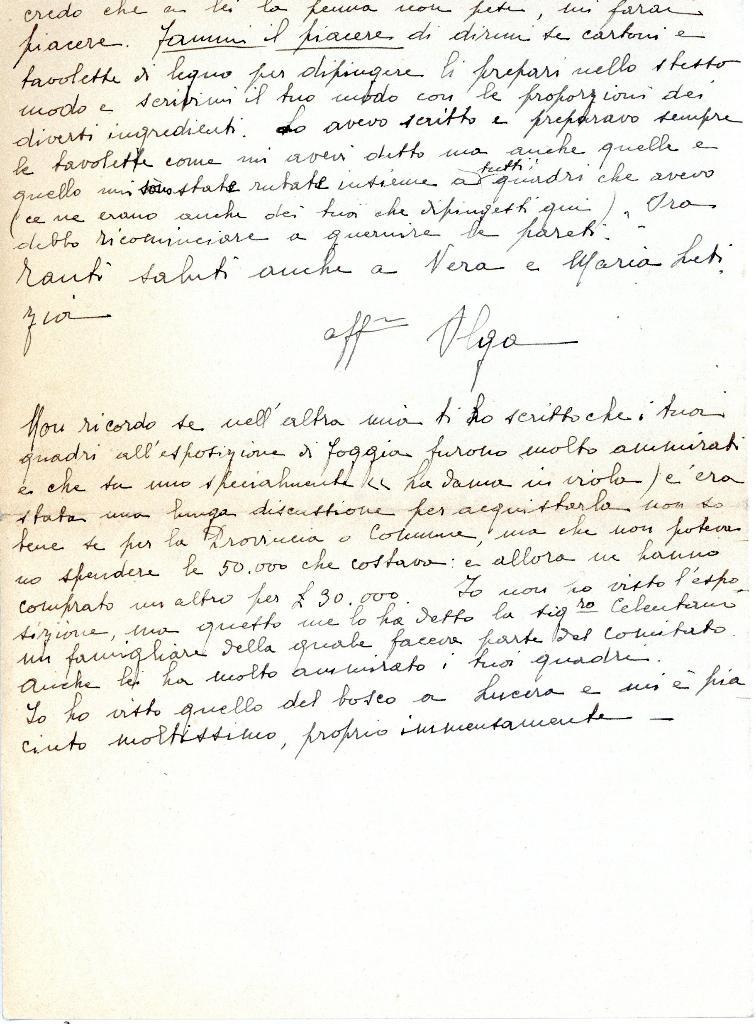 credo che a lei la penna non pesi, mi farai
piacere. Fammi il piacere di dirmi se cartoni e
tavolette di legno per dipingere li prepari nello stesso
modo e scrivimi il tuo modo con le proporzioni dei
diversi ingredienti. Lo avevo scritto e preparavo sempre
le tavolette come mi avevi detto ma anche quelle e
quello mi sono state rubate insieme a tutti i quadri che avevo
(ce ne erano anche dei tuoi che dipingesti qui). Ora
debbo ricominciare a guernire le pareti.
Tanti saluti anche a Vera e Maria Leti
zia
aff.ma Olga
Non ricordo se nell'altra mia ti ho scritto che i tuoi
quadri all'esposizione di Foggia furono molto ammirati
e che su uno specialmente << la dama in viola) c'era
stata una lunga discussione per acquistarla non so
bene se per la Provincia o Comune, ma che non poteva
no spendere le 50.000 che costava: e allora ne hanno
comprato un altro per £ 30.000. Io non ho visto l'espo-
sizione, ma questo me lo ha detto la sig.ra Celentano
un famigliare della quale faceva parte del comitato.
Anche lei ha molto ammirato i tuoi quadri.
Io ho visto quello del bosco a Lucera e mi è pia
ciuto moltissimo, proprio immensamente —